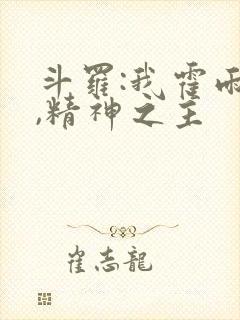 斗罗:我霍雨
,精神之主
崔志龍